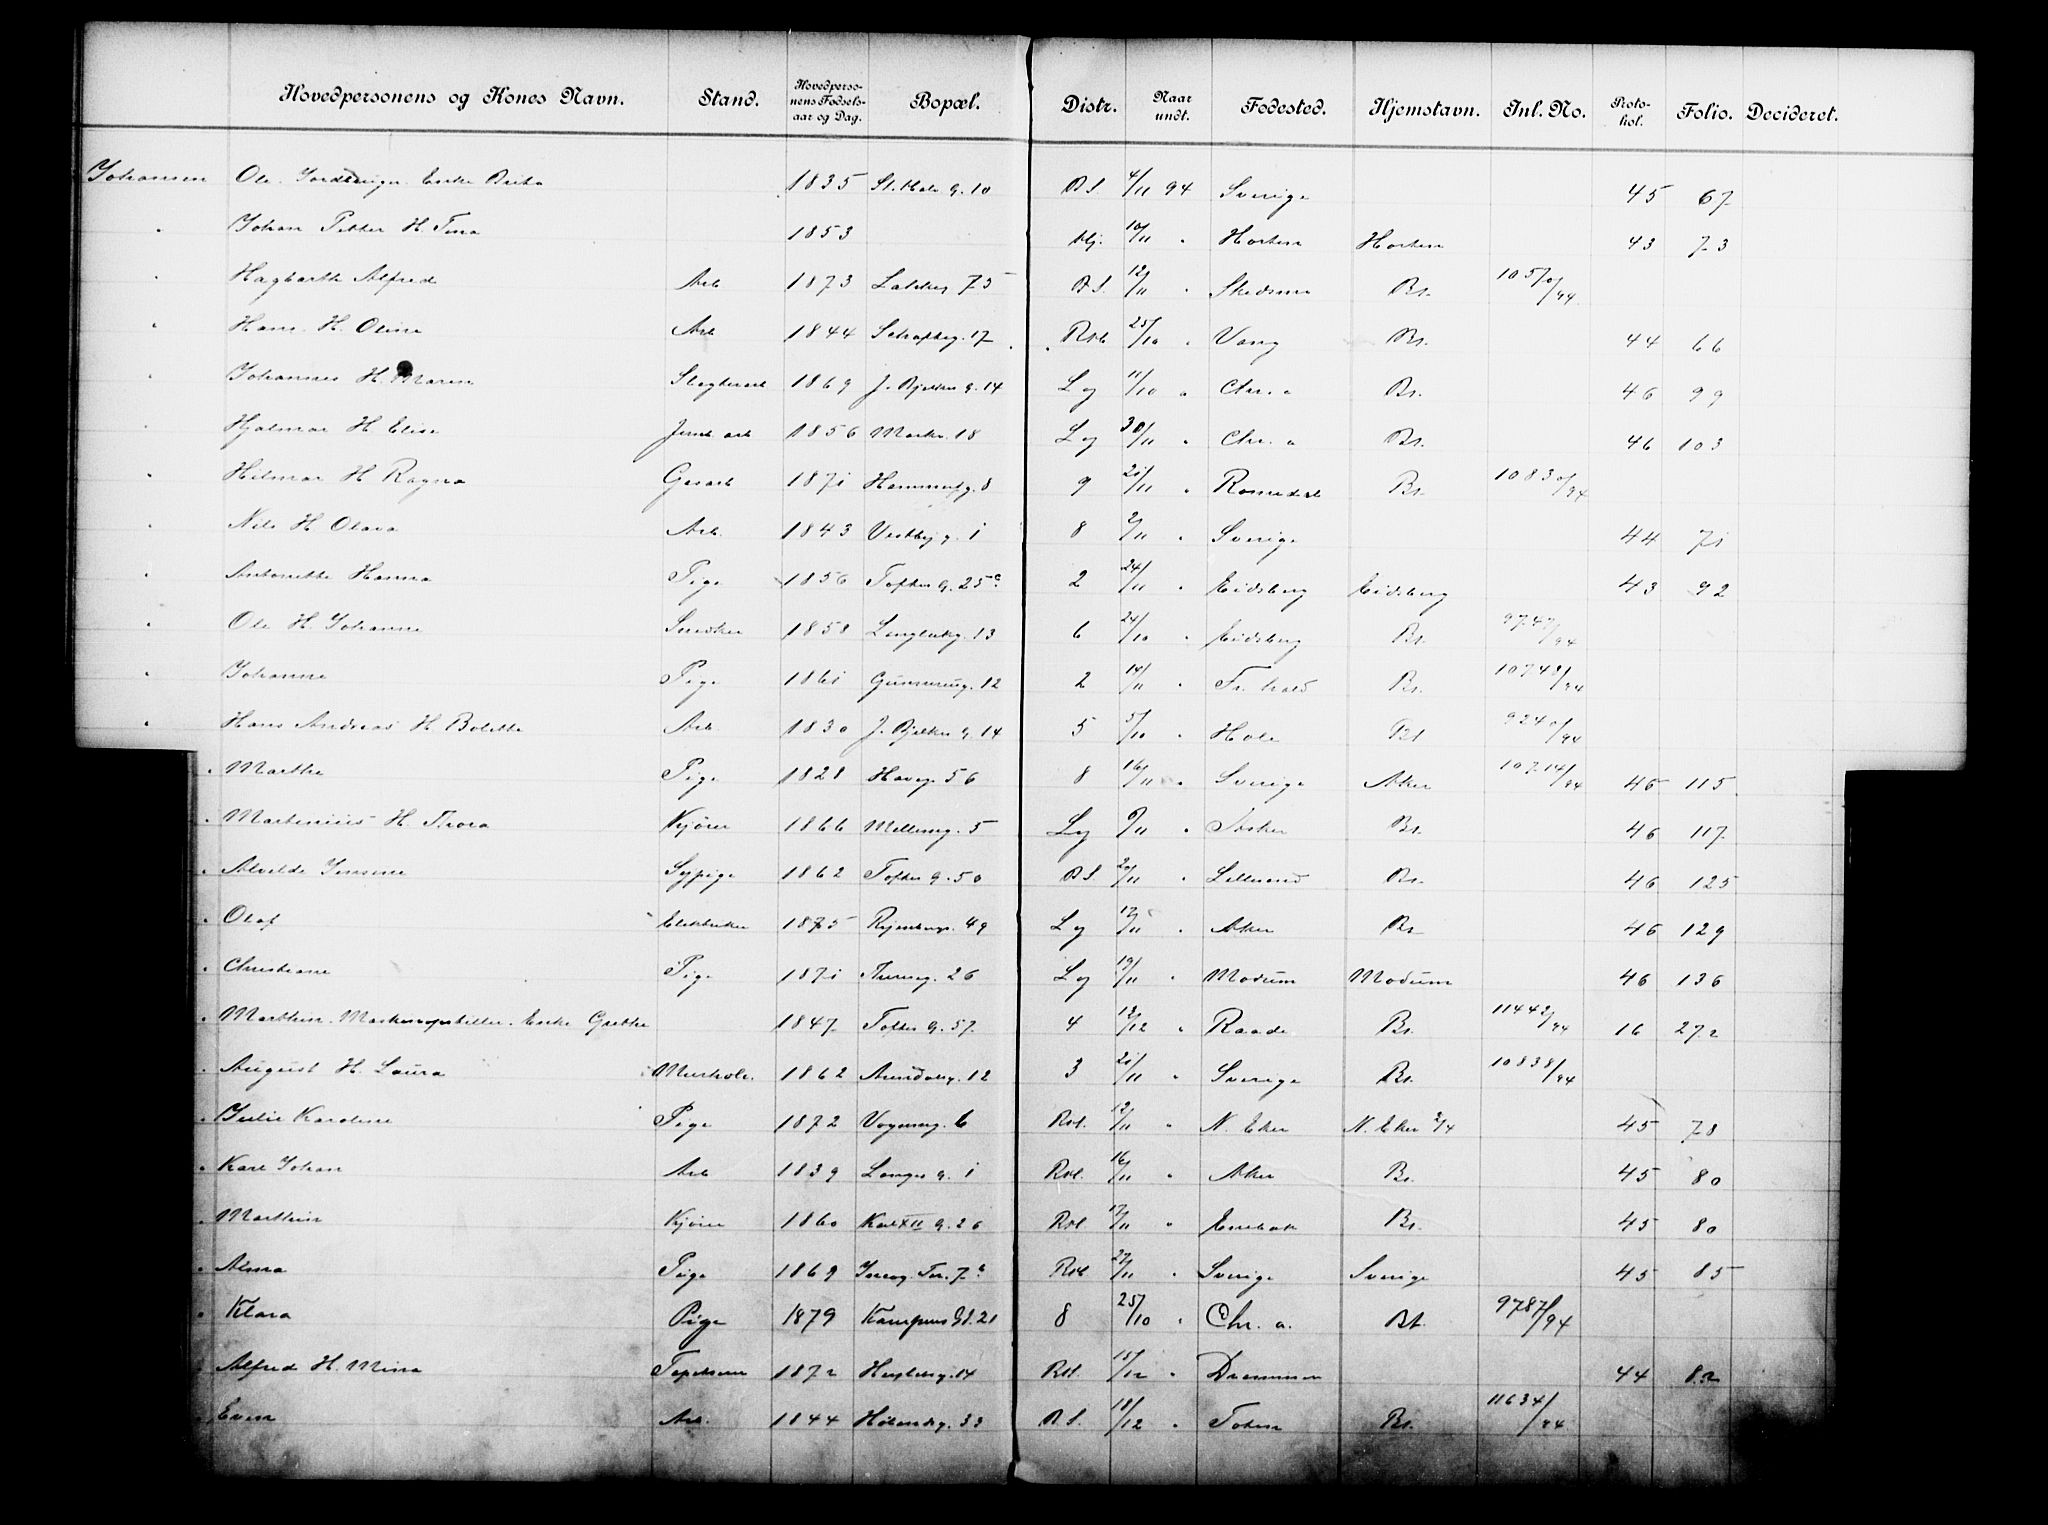 Hovedpersonens og Kones Navn. Stand. Hovedpersonens Fødselsaar og Dag. Bopæl. Distr. Naar undt. Fødested. Hjemstavn. Inl. No. Protokol. Folio. Decideret.
Johansen Ole Enke 1835 St. Hale g. 10 B S. 4/11 94 Sverige 45 67
" Johan Petter H. Tina 1853 Hj. 10/11 " Horten Horten 43 73
" Hagbarth Alfred Arb 1873 Lakkeg 75 B S. 12/11 " Skedsmo Br. 1057 0/94
" Hans H. Oline Arb 1844 Schoubg. 17 Rob 25/10 " Vang Br. 44 66
" Johannes H. Maren Slagterarb 1869 J. Bjelkes g. 14 L g 11/10 " Chr. a Br. 46 99
" Hjalmar H. Elise Jernb arb 1856 Markv. 18 L g 30/11 " Chr. a Br. 46 103
" Hilmar H Ragna Gasarb 1871 Hammerfg. 8 9 21/11 " Romedal Br. 1083 0/94
" Nils H. Olava Arb. 1843 Vestbyg. 1 8 2/11 " Sverige 44 71
" Antonette Hanna Pige 1856 Toftes g. 25 c 2 24/11 " Eidsberg Eidsberg 43 92
" Ole H. Johanne Snedker 1858 Langleikg. 13 6 24/10 " Eidsberg Br. 974 7/94
" Johanne Pige 1861 Gunnerusg. 12 2 14/11 " Fr. hald Br. 1074 8/94
" Hans Andreas H. Bolette Arb. 1830 J. Bjelkes g. 14 5 5/10 " Hole Br 924 0/94
" Marthe Pige 1828 Haveg. 56 8 16/11 " Sverige Aker 1071 4/94 46 115
" Martinius H. Thora Kjører 1866 Møllerg. 5 L g 9/11 " Asker Br. 46 117
" Alvilde Jensine Sypige 1862 Toftes g. 50 B S. 20/11 " Lillesand Br. 46 125
" Olaf Elektriker 1875 Ryenbergv. 49 L g 17/11 " Aker Br 46 129
" Christiane Pige 1871 Thereseg. 26 L g 19/11 " Modum Modum 46 136
" Marthin. Enke Grethe 1847 Toftes g. 57 4 12/12 " Raade Br. 1144 2/94 16 272
" August H. Laura Murhdl. 1862 Arendalsg. 12 3 21/11 " Sverige Br. 1083 8/94
" Julie Karoline Pige 1872 Vognmg. 6 Rob. 12/11 " N. Eker N. Eker 2/4 45 78
" Karl Johan Arb 1839 Langes g. 1 Rob. 16/11 " Aker Br. 45 80
" Marthin Kjører 1860 Karl XII g. 26 Rob 17/11 " Enebak Br. 45 80
" Alma Pige 1869 Rob 27/11 " Sverige Sverige 45 85
" Klara Pige 1879 Kampens Gd. 21 8 25/10 " Chr. a. Br. 978 7/94
" Alfred H. Mina Tapetserer 1872 Herslebsg. 14 Rob. 15/12 " Drammen 44 82
" Even Arb. 1844 Hølandsg. 33 B S. 18/12 " Toten Br. 1163 4/94